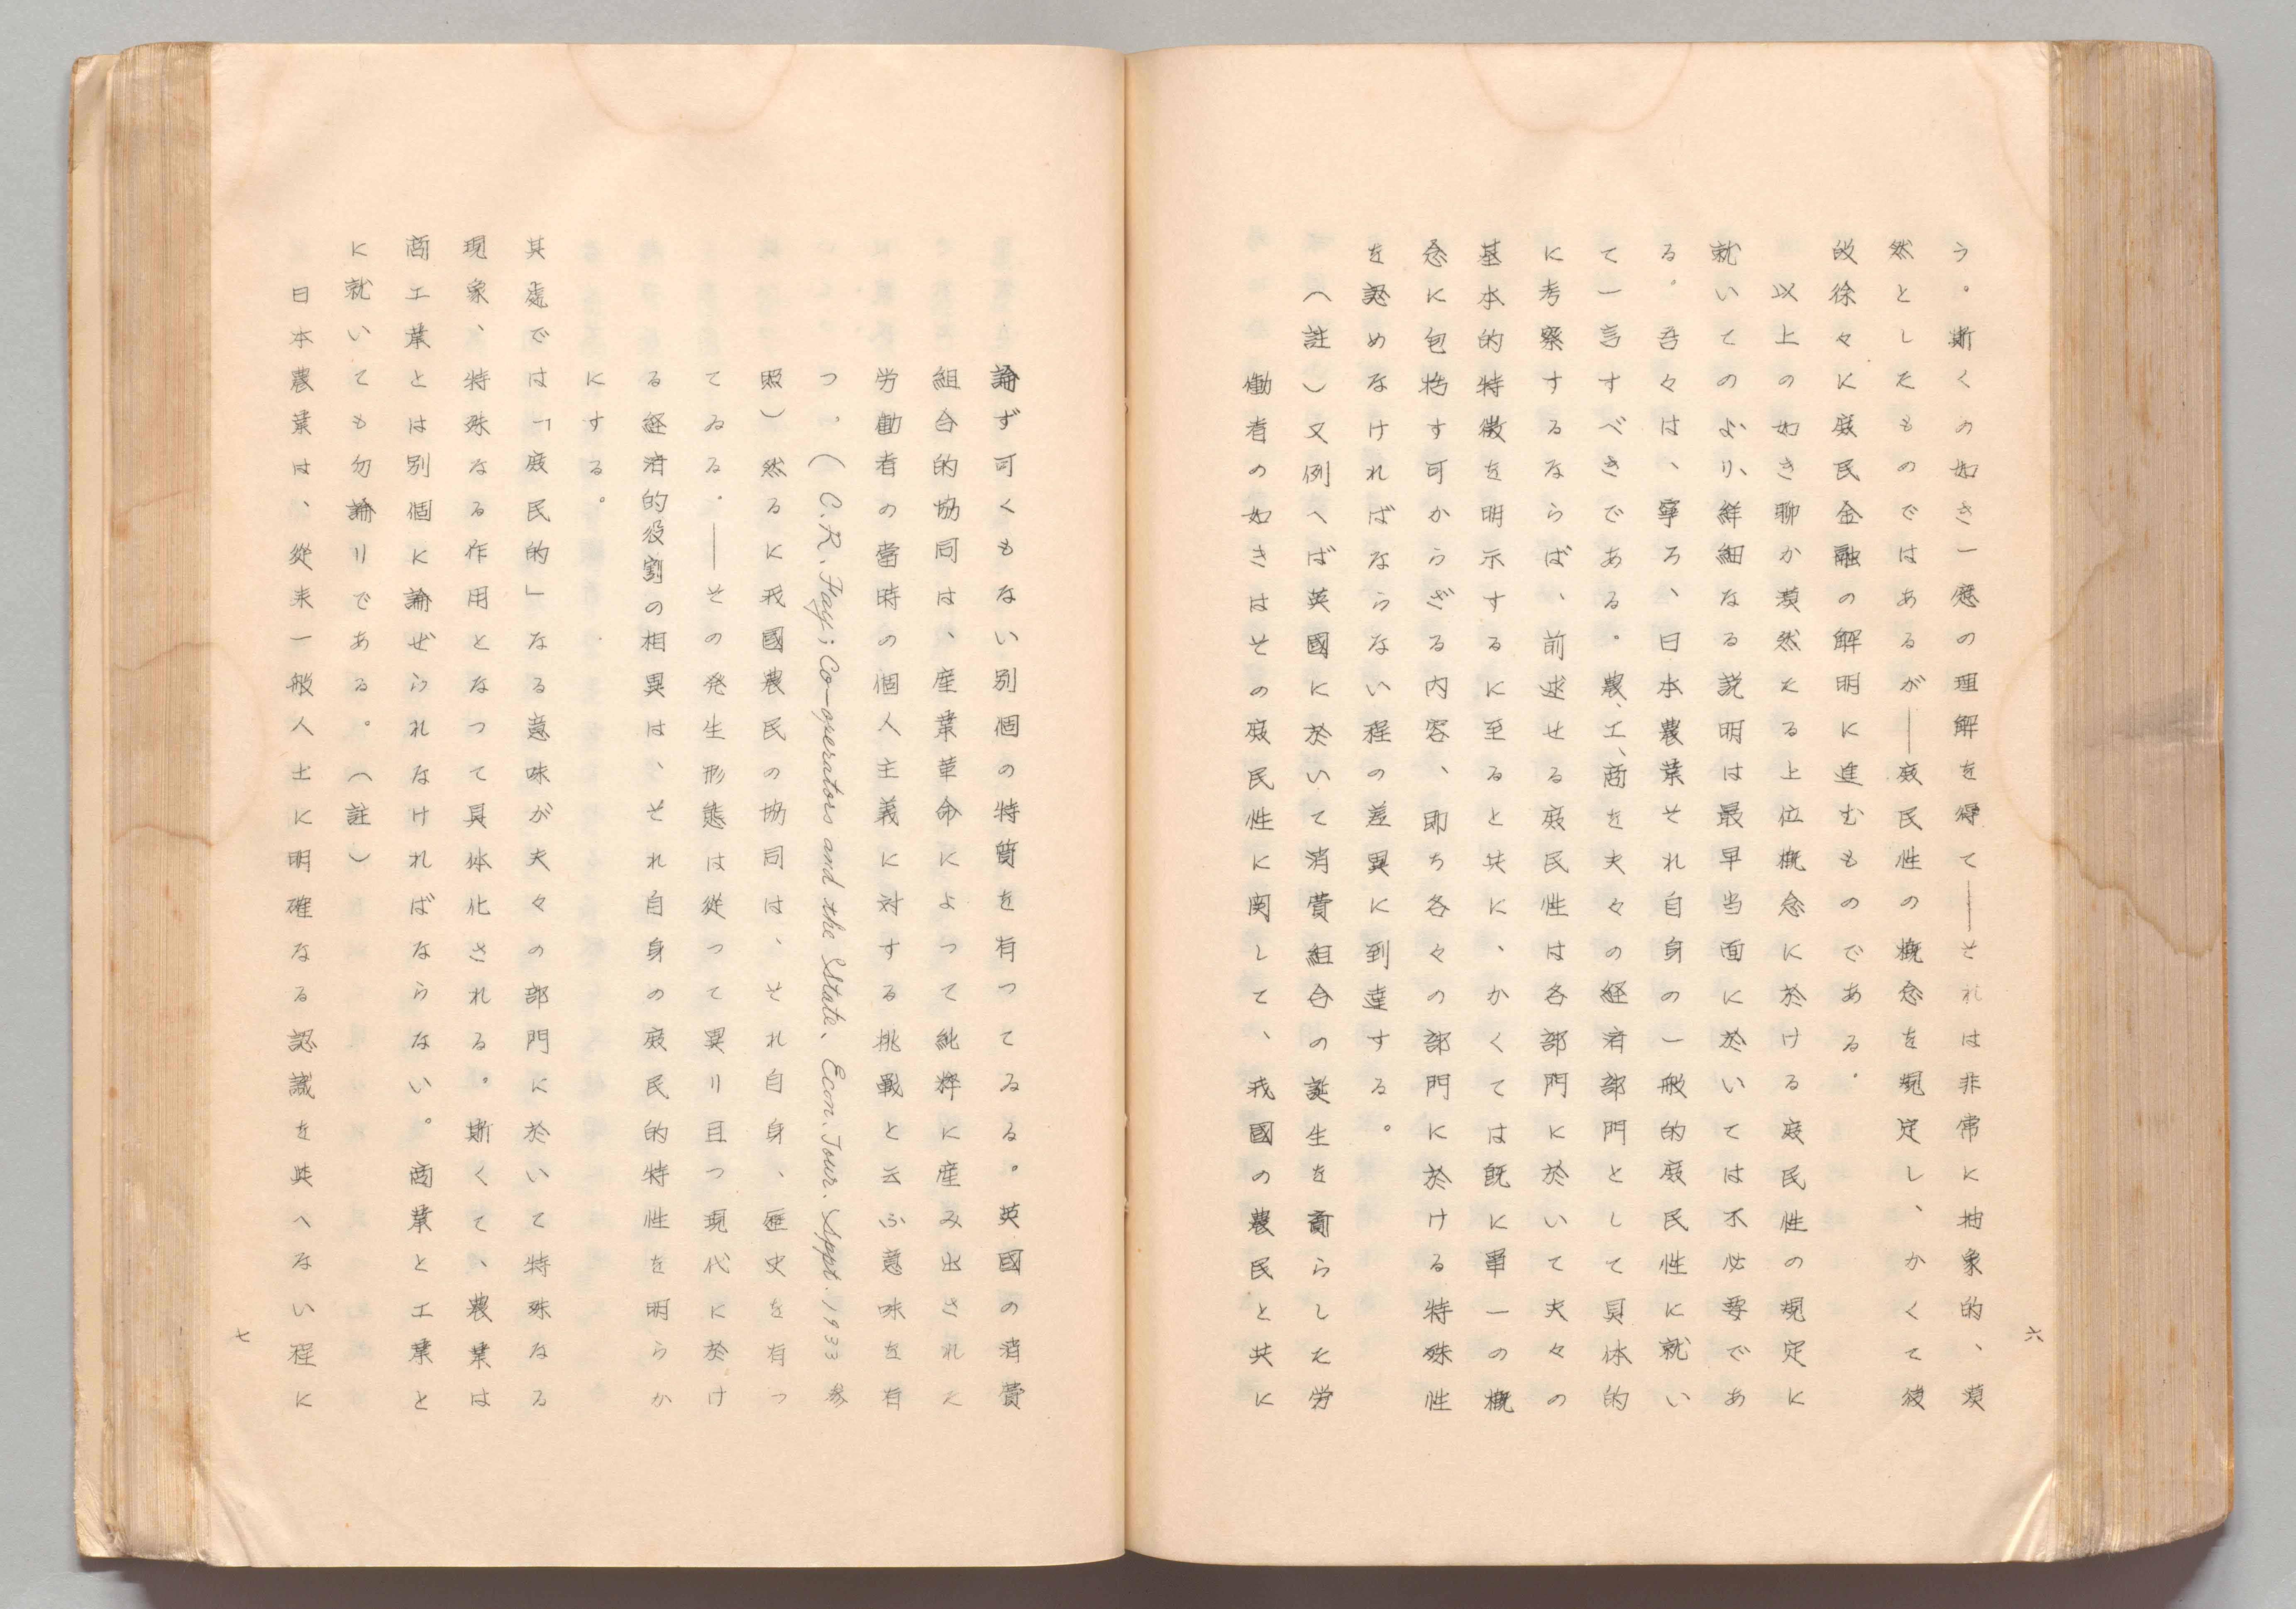 う。斯くの如き一應の理解を得て――それは非常に抽象的、漠
然としたものではあるが――庶民性の概念を規定し、かくて後
改徐々に庶民金融の解明に進むものである。
以上の如き聊か漠然たる上位概念に於ける庶民性の規定に
就いてのより、鮮細なる説明は最早当面に於いては不必要であ
る。吾々は、寧ろ、日本農業それ自身の一般的庶民性に就い
て一言すべきである。農、工、商を夫々の経済部門として具体的
に考察するならば、前述せる庶民性は各部門に於いて夫々の
基本的特徴を明示するに至ると共に、かくては既に単一の概
念に包括す可からざる内容、即ち各々の部門に於ける特殊性
を認めなければならない程の差異に到達する。
(註)又例へば英國に於いて消費組合の誕生を齎らした労
働者の如きはその庶民性に関して、我國の農民と共に
六
論ず可くもない別個の特質を有つてゐる。英國の消費
組合的協同は、産業革命によつて純粋に産み出された
労働者の當時の個人主義に対する挑戦と云ふ意味を有
つ。(C.R.Fay; Co-operators and the State, Econ. Jour. Sppt. 1933 参
照)然るに我國農民の協同は、それ自身、歴史を有つ
てゐる。――その発生形態は従つて異り且つ現代に於け
る経済的役割の相異は、それ自身の庶民的特性を明らか
にする。
其處では「庶民的」なる意味が夫々の部門に於いて特殊なる
現象、特殊なる作用となつて具体化される。斯くて、農業は
商工業とは別個に論ぜられなければならない。商業と工業と
に就いても勿論りである。(註)
日本農業は、從来一般人士に明確なる認識を與へない程に
七